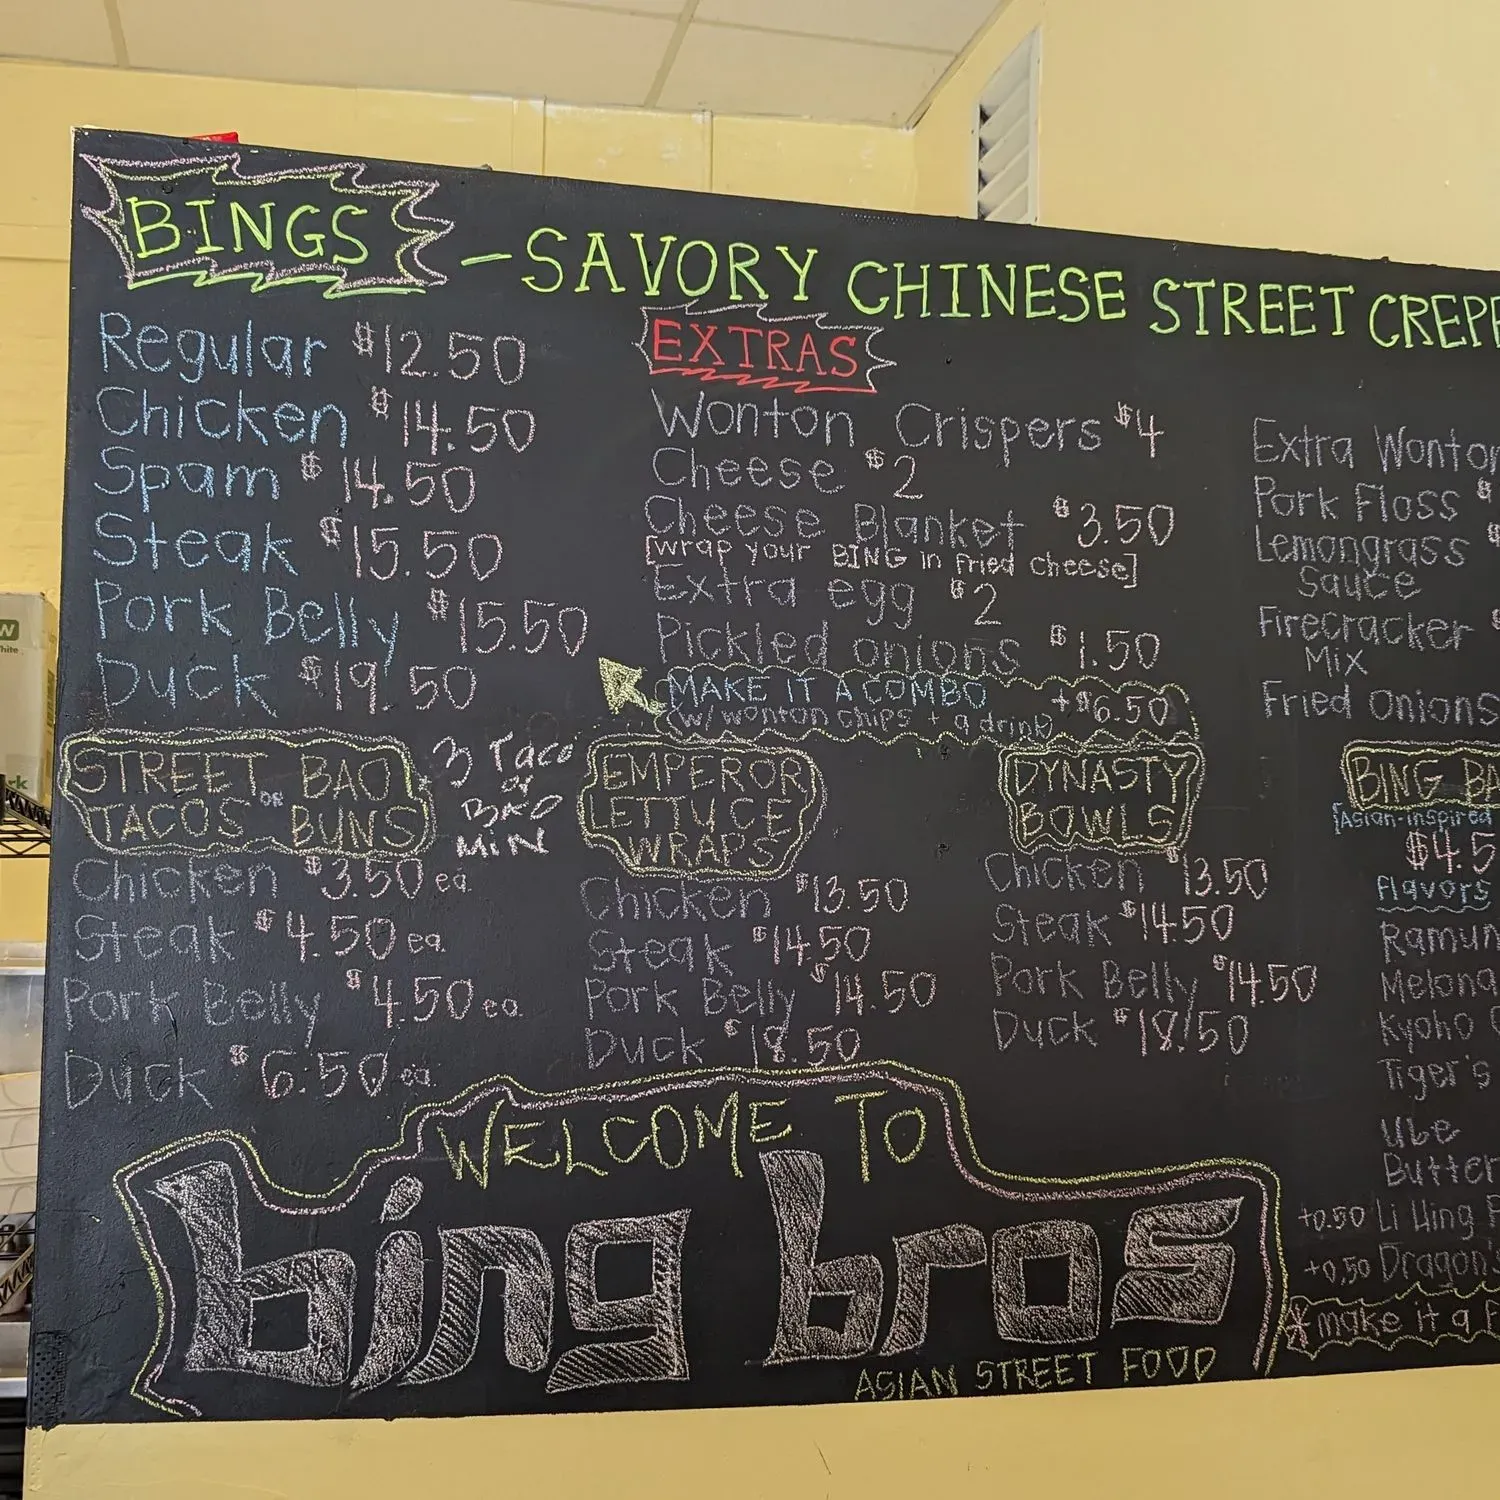 BINGS - SAVORY CHINESE STREET CREPE
Regular $12.50
Chicken $14.50
Spam $14.50
Steak $15.50
Pork Belly $15.50
Duck $19.50
EXTRAS
Wonton Crispers $4
Cheese $2
Cheese Blanket $3.50
[wrap your BING in fried cheese]
Extra egg $2
Pickled onions $1.50
MAKE IT A COMBO +$6.50
w/ wonton chips + a drink
Extra Wonton
Pork Floss $
Lemongrass $
Sauce
Firecracker $
Mix
Fried Onions
STREET BAO
TACOS OR BUNS
3 Taco
or
BAO
MIN
Chicken $3.50 ea.
Steak $4.50 ea.
Pork Belly $4.50 ea.
Duck $6.50 ea.
EMPEROR
LETTUCE
WRAPS
Chicken $13.50
Steak $14.50
Pork Belly $14.50
Duck $18.50
DYNASTY
BOWLS
Chicken $13.50
Steak $14.50
Pork Belly $14.50
Duck $18.50
BING BA
[Asian-inspired
$4.5
Flavors
Ramun
Melona
Kyoho
Tiger's
Ube
Butter
+0.50 Li Hing
+0.50 Dragon's
*make it a
WELCOME TO
bing bros
ASIAN STREET FOOD